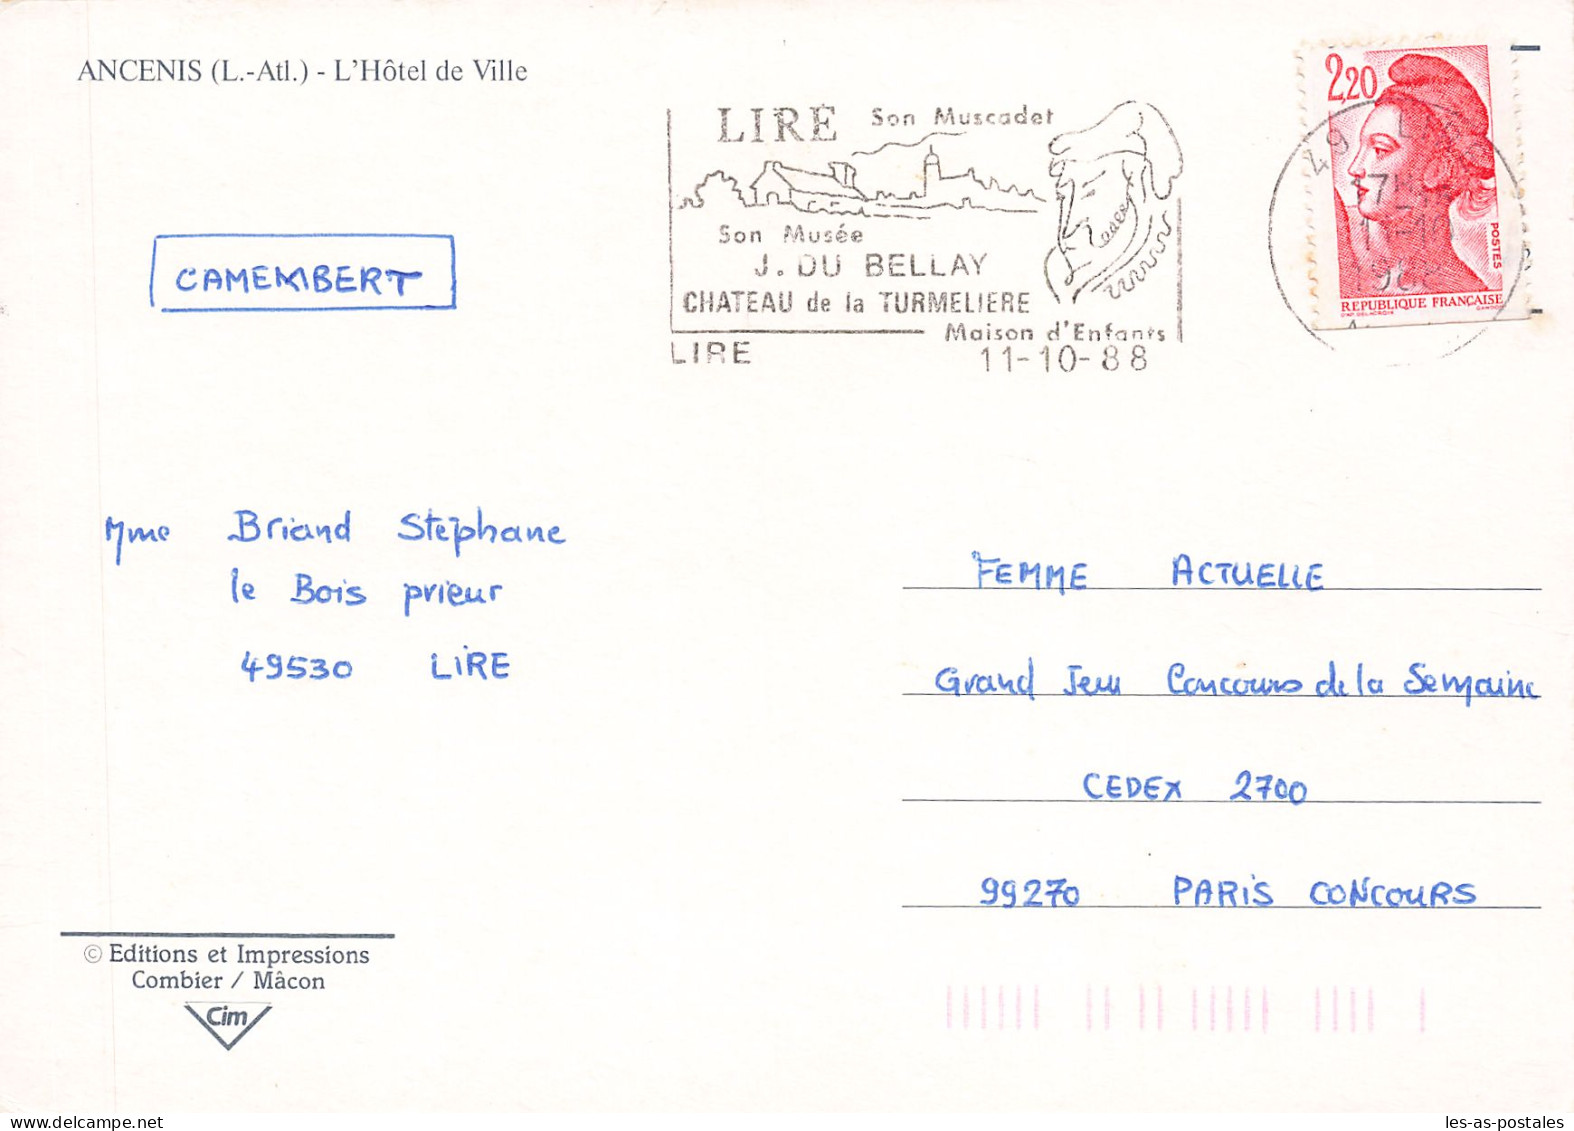 ANCENIS (L.-Atl.) - L'Hôtel de Ville
LIRÉ Son Muscadet
Son Musée
J. DU BELLAY
CHATEAU de la TURMELIERE
Maison d'Enfants
LIRE 11-10-88
2,20
POSTES
REPUBLIQUE FRANÇAISE
49
CAMEMBERT
Mme Briand Stéphane
le Bois prieur
49530 LIRE
FEMME ACTUELLE
Grand Jeu Concours de la Semaine
CEDEX 2700
99270 PARIS CONCOURS
© Editions et Impressions
Combier / Mâcon
Cim
les-as-postales
www.delcampe.net